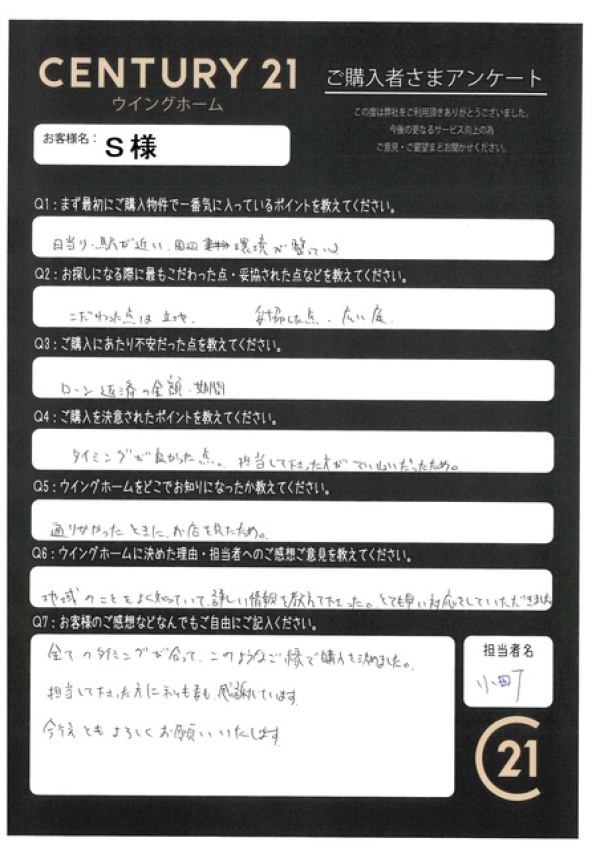 CENTURY 21
ウイングホーム
ご購入者さまアンケート
この度は弊社をご利用頂きありがとうございました。
今後の更なるサービス向上の為
ご意見・ご要望までお聞かせください。
お客様名： S 様
Q1：まず最初にご購入物件で一番気に入っているポイントを教えてください。
日当り・駅が近い、周辺 環境が整っている
Q2：お探しになる際に最もこだわった点・妥協された点などを教えてください。
こだわった点は 立地、 妥協した点・広い庭.
Q3：ご購入にあたり不安だった点を教えてください。
ローン返済の金額・期間
Q4：ご購入を決意されたポイントを教えてください。
タイミングが良かった点。 担当して下さった方がていねいだったため。
Q5：ウイングホームをどこでお知りになったか教えてください。
通りかかったときに、お店を見たため。
Q6：ウイングホームに決めた理由・担当者へのご感想ご意見を教えてください。
地域のことをよく知っていて、詳しい情報を教えて下さった。とても早い対応をしていただきました
Q7：お客様のご感想などなんでもご自由にご記入ください。
全てのタイミングが合って、このようなご縁で購入を決めました。
担当して下さった方に私も妻も感謝しています
今後ともよろしくお願いいたします
担当者名
小町
C21